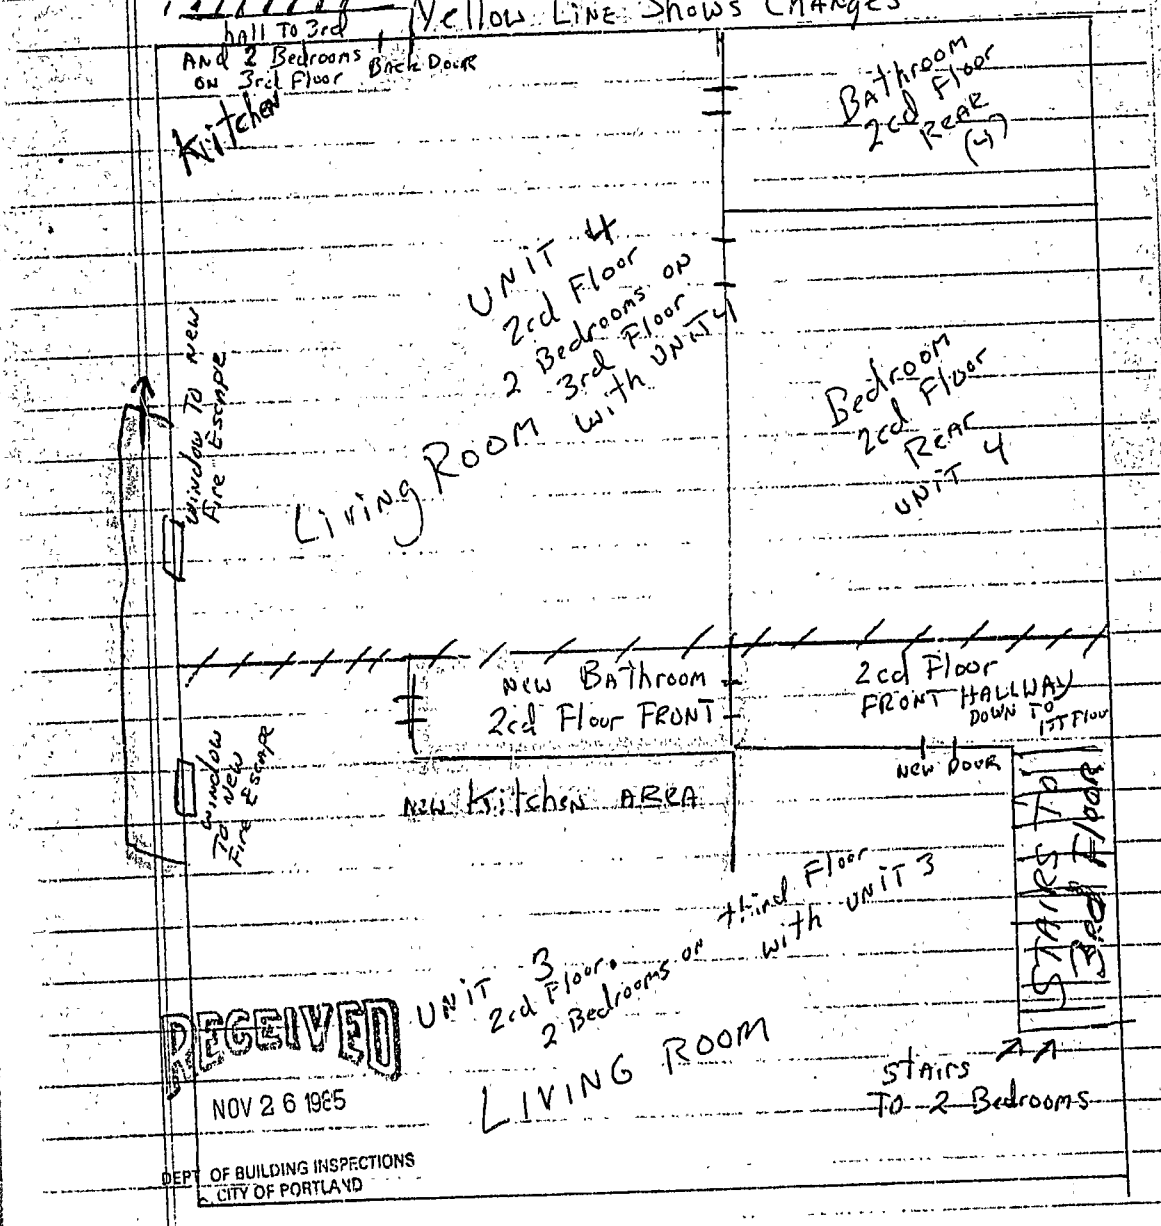 Yellow Line Shows Changes
hall To 3rd
And 2 Bedrooms
on 3rd Floor
Back Door
Kitchen
Bathroom
2cd Floor
Rear
(4)
Unit 4
2cd Floor
2 Bedrooms on
3rd Floor
with Unit 4
Living Room
Window To New
Fire Escape
Bedroom
2cd Floor
Rear
Unit 4
New Bathroom
2cd Floor Front
2cd Floor
Front Hallway
Down To
1st Floor
New Door
Window
To New
Fire Escape
New Kitchen Area
Stairs To
3rd Floor
Unit 3
2cd Floor.
2 Bedrooms on third Floor
with Unit 3
Living Room
Stairs
To 2 Bedrooms
RECEIVED
NOV 26 1985
DEPT OF BUILDING INSPECTIONS
CITY OF PORTLAND